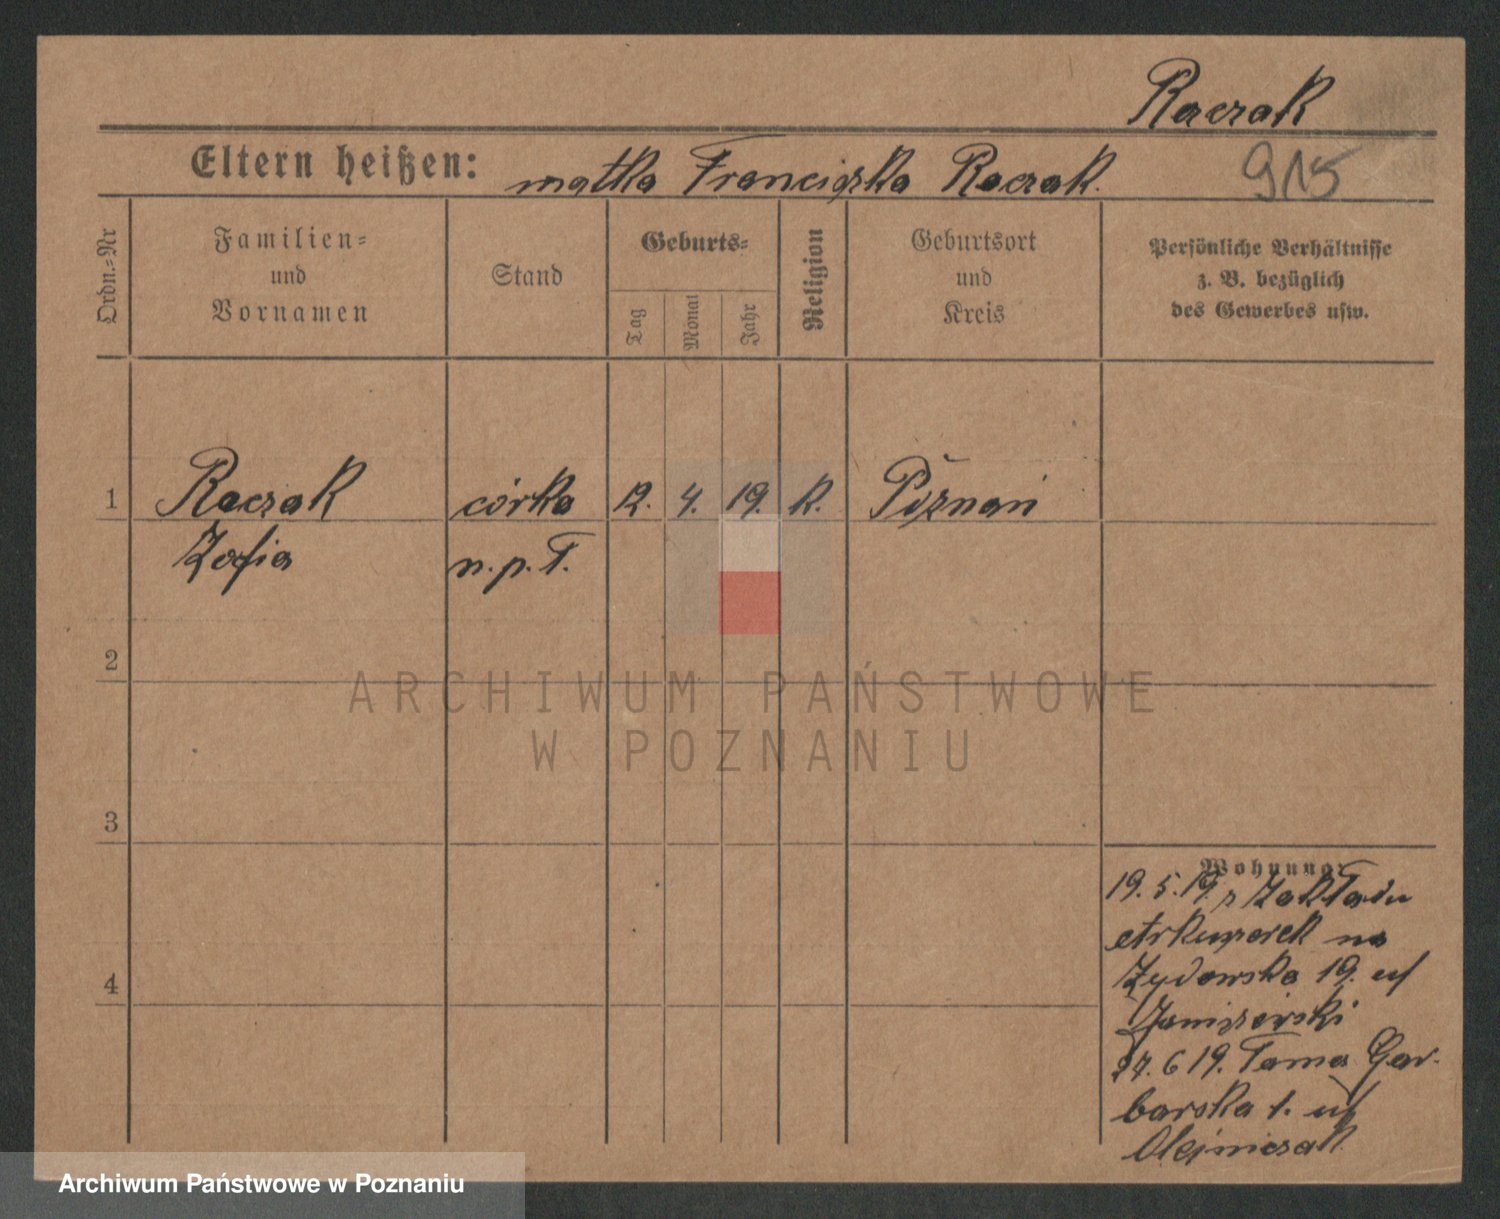 Raczak
Eltern heißen: matka Franciszka Raczak.
915
Ordn.=Nr
Familien=
und
Vornamen
Stand
Geburts=
Tag
Monat
Jahr
Religion
Geburtsort
und
Kreis
Persönliche Verhältnisse
z. B. bezüglich
des Gewerbes usw.
1 Raczak córka 12. 4. 19. K. Poznań
Zofia n.p.T.
2
3
4
Wohnung
19. 5. 19. z Zakładu
na
Żydowska 19. u/
Janiszewski
27. 6 19. Tama Gar-
barska 1. u/
Olejniczak
ARCHIWUM PAŃSTWOWE
W POZNANIU
Archiwum Państwowe w Poznaniu